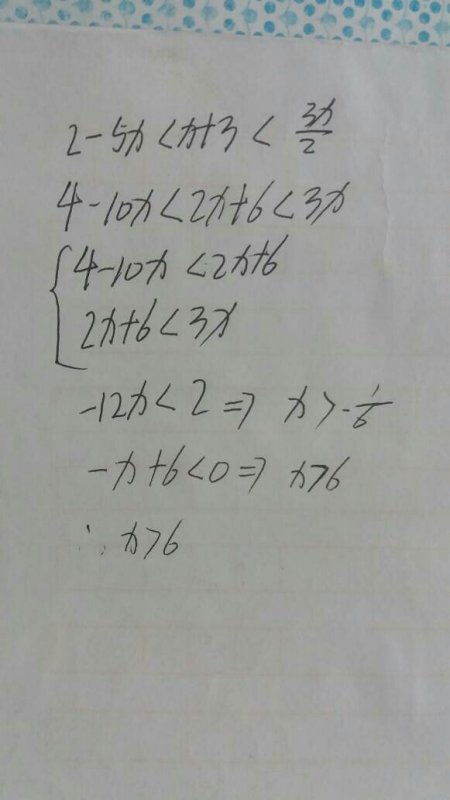 2-5x<x+3<3x/2
4-10x<2x+6<3x
{4-10x<2x+6
2x+6<3x
-12x<2⇒ x>-1/6
-x+6<0⇒ x>6
∴ x>6